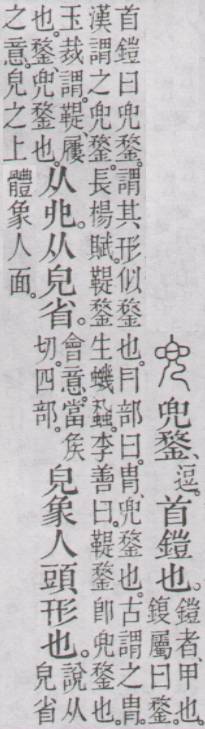 兜鍪、逗。首鎧也。鎧者、甲也。
鍑屬曰鍪。
首鎧曰兜鍪。謂其形似鍪也。冃部曰。冑、兜鍪也。古謂之冑。
漢謂之兜鍪。長楊賦。鞮鍪生蟣蝨。李善曰。鞮鍪卽兜鍪也。
玉裁謂。鞮、屨
也。鍪、兜鍪也。从𠑹。从皃省。會意。當矦
切。四部。皃象人頭形也。說从
皃省
之意。皃之上體象人面。